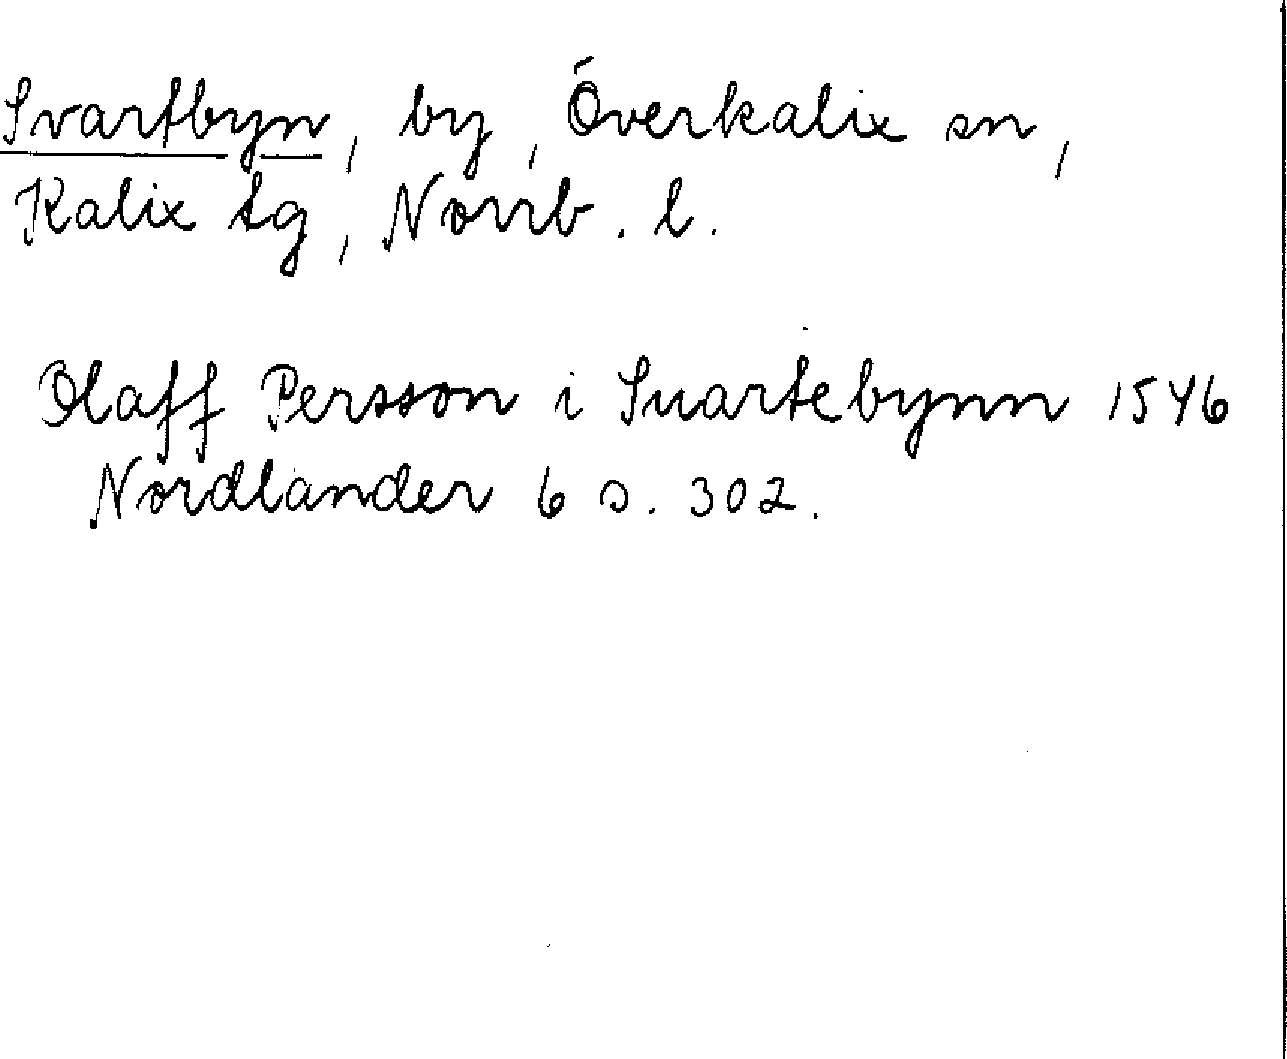 Svartbyn, by, Överkalix sn,
Kalix tg, Norrb. l.
Olaff Persson i Suartebynn 1546
Nordlander 6 s. 302.